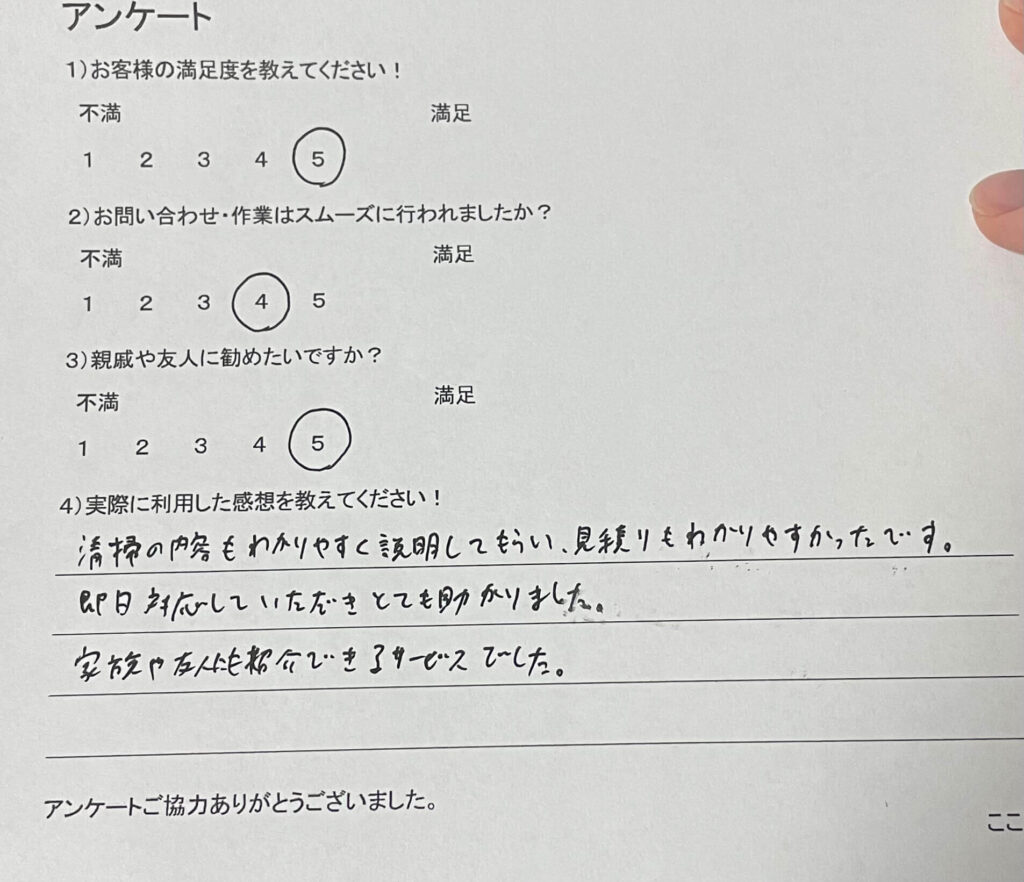 アンケート
1)お客様の満足度を教えてください！
不満 満足
1 2 3 4 5
2)お問い合わせ・作業はスムーズに行われましたか？
不満 満足
1 2 3 4 5
3)親戚や友人に勧めたいですか？
不満 満足
1 2 3 4 5
4)実際に利用した感想を教えてください！
清掃の内容もわかりやすく説明してもらい、見積りもわかりやすかったです。
即日対応していただきとても助かりました。
家族や友人にも紹介できるサービスでした。
アンケートご協力ありがとうございました。
ここ